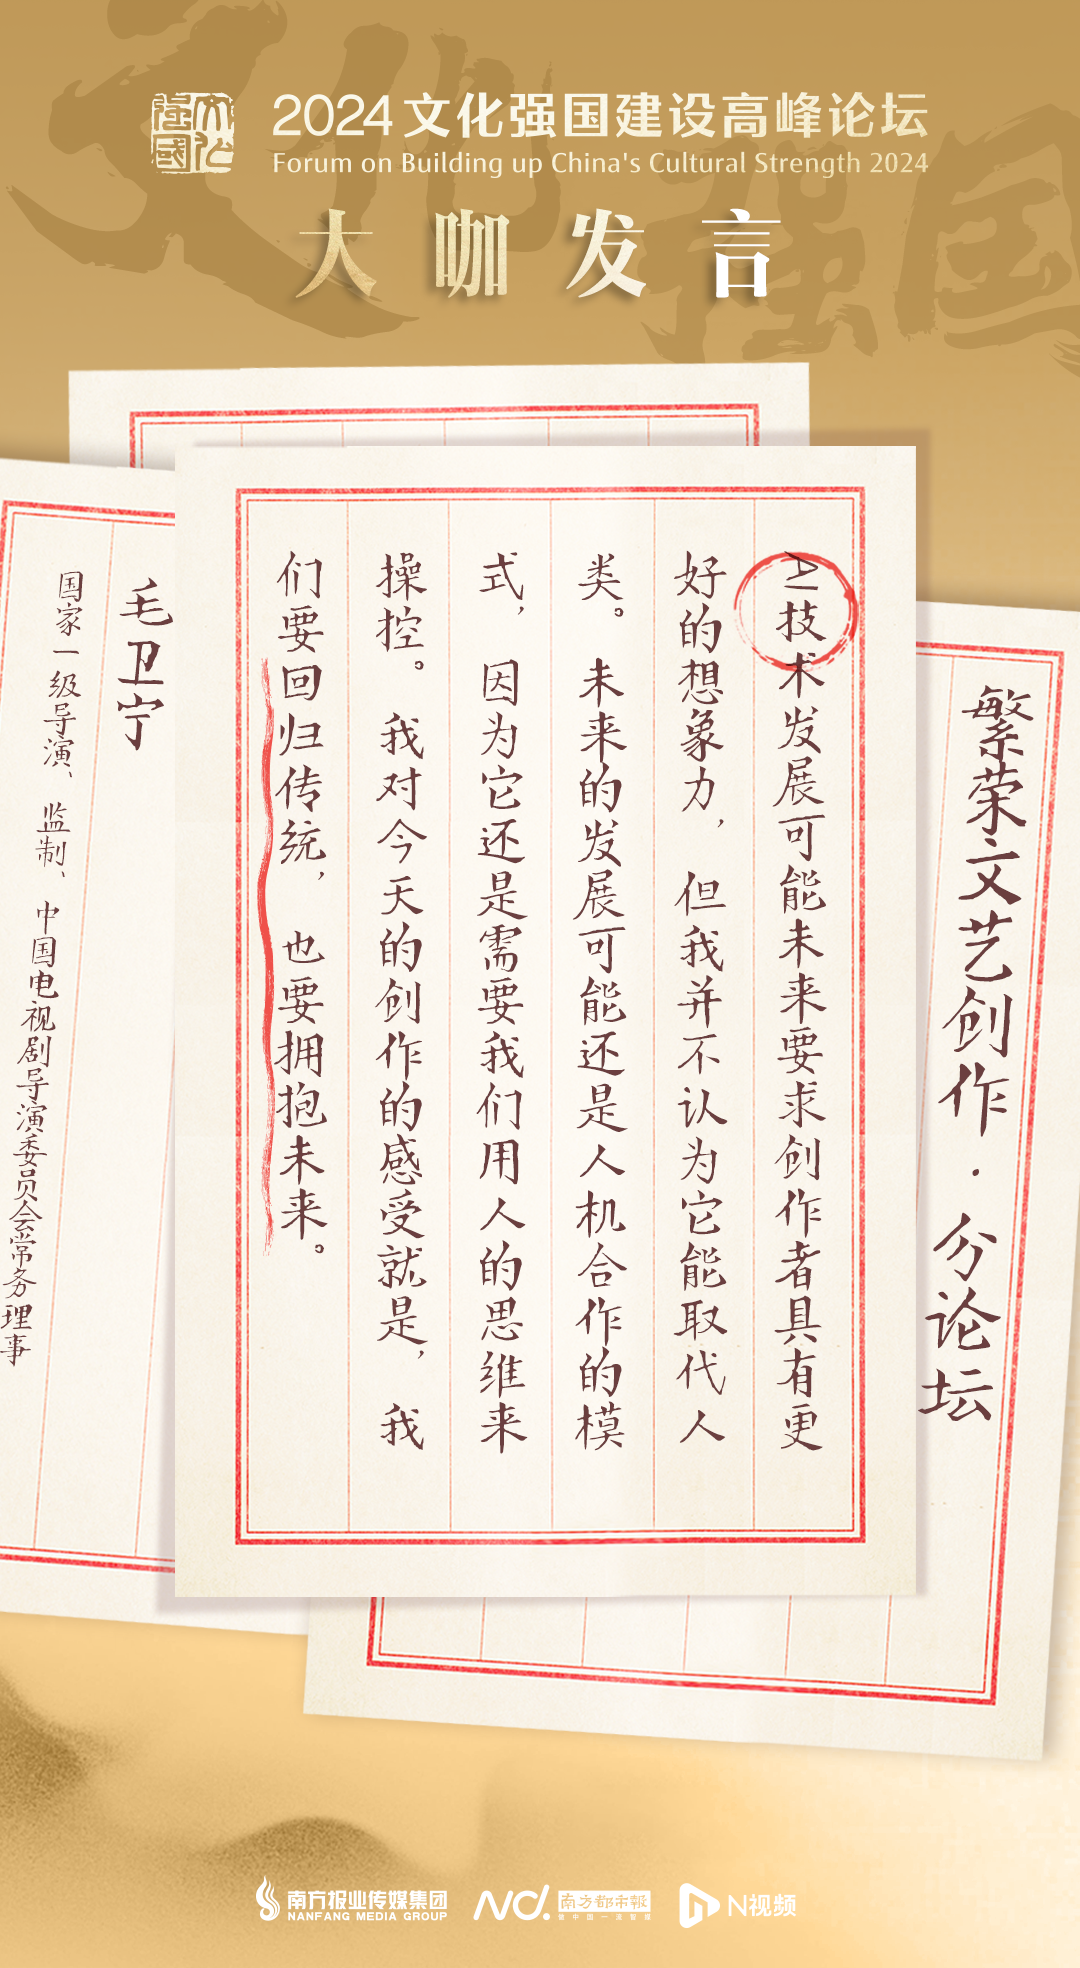 2024文化强国建设高峰论坛
Forum on Building up China's Cultural Strength 2024
大咖发言
繁荣文艺创作·分论坛
AI技术发展可能未来要求创作者具有更
好的想象力，但我并不认为它能取代人
类。未来的发展可能还是人机合作的模
式，因为它还是需要我们用人的思维来
操控。我对今天的创作的感受就是，我
们要回归传统，也要拥抱未来。
毛卫宁
国家一级导演、监制、中国电视剧导演委员会常务理事
南方报业传媒集团
NANFANG MEDIA GROUP
nd.
南方都市報
N视频